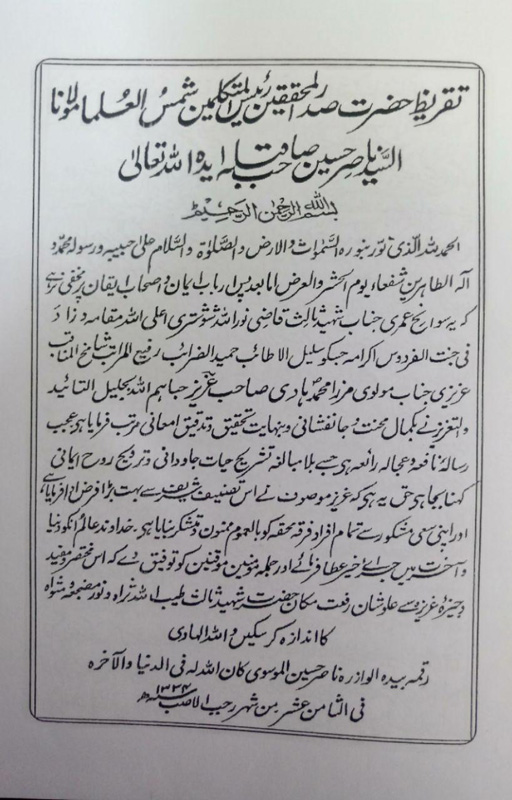 تقریظ حضرت صدر المحققین رئیس المتکلمین شمس العلما مولانا
السید ناصر حسین صاحب قبلہ ایدہ اللہ تعالیٰ
بسم اللہ الرحمٰن الرحیم
الحمد للہ الذی نور بنورہ السمٰوات والارض والصلوٰۃ والسلام علیٰ حبیبہ ورسولہ محمد و
آلہ الطاہرین شفعاء یوم الحشر والعرض اما بعد پس ارباب ایمان و اصحاب ایقان پر مخفی نرہے
کہ یہ سوانح عمری جناب شہید ثالث قاضی نور اللہ شوشتری اعلی اللہ مقامہ وزاد
فی جنت الفردوس اکرامہ جسکو سلیل الاطائب حمید الضرائب رفیع المراتب شامخ المناقب
عزیزی جناب مولوی مرزا محمد ہادی صاحب عزیز حباہم اللہ بجلیل التائید
والتعزیز نے بکمال محنت و جانفشانی و نہایت تحقیق و تدقیق امعانی مرتب فرمایا ہو عجب
رسالہ نافعہ و عجالہ رائعہ ہی جسے بلا مبالغہ تشریح حیات جاودانی و ترویح روح ایمانی
کہنا بجا ہی حق یہ ہی کہ عزیز موصوف نے اس تصنیف شریف سے بہت بڑا فرض ادا فرمایا ہی
اور اپنی سعی مشکور سے تمام افراد فرقہ محقہ کو بالعموم ممنون و متشکر بنایا ہی۔ خداوند عالم انکو دنیا
و آخرت میں جزاے خیر عطا فرمائے اور جملہ مومنین موقنین کو توفیق دے کہ اس مختصر و مفید
وجیزۂ عزیز سے علو شان رفعت مکان حضرت شہید ثالث طیب اللہ ثراہ و نور مضجعہ و مثواہ
کا اندازہ کر سکیں واللہ الہادی
رقمہ بیدہ الوازرہ ناصر حسین الموسوی کان اللہ لہ فی الدنیا والآخرہ
فی الثامن عشر من شہر رجب الاصب سنہ ۱۳۳۴ھ